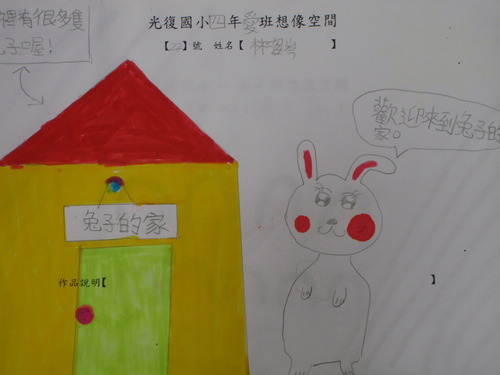 裡有很多隻
子喔!
光復國小四年愛班想像空間
【22】號 姓名【林
】
歡迎來到兔子的
家。
兔子的家
作品說明【
】